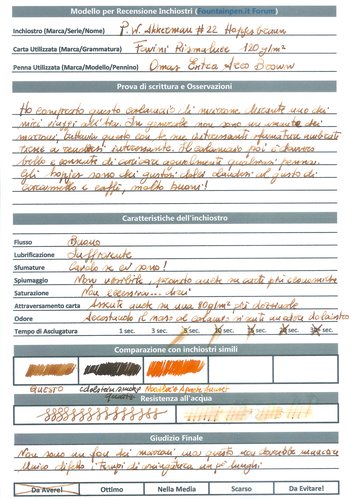 Modello per Recensione Inchiostri (Fountainpen.it Forum)
Inchiostro (Marca/Serie/Nome) P.W. Akkerman #22 Hopjesbrown
Carta Utilizzata (Marca/Grammatura) Favini Rismaluce 120 g/m²
Penna Utilizzata (Marca/Modello/Pennino) Omas Extra Arco Brown
Prova di scrittura e Osservazioni
Ho comprato questo calamaio di marrone durante uno dei
miei viaggi all' In generale non sono un amante dei
marroni, tuttavia questo con le sue interessanti sfumature
riesce a interessante. Il calamaio poi è davvero
bello e consente di caricare agevolmente qualsiasi penna.
Gli hopjes sono dei gustosi dolci olandesi al gusto di
caramello e caffè, molto buoni!
Caratteristiche dell'inchiostro
Flusso Buono
Lubrificazione Sufficiente
Sfumature Cavolo se ci sono!
Spiumaggio Non visibile, anche su carte più economiche
Saturazione Non eccessiva...
Attraversamento carta Assente anche su una 80g/m² più
Odore Accostando il naso al calamaio si sente un odore
Tempo di Asciugatura 1 sec. 3 sec. 5 sec. 10 sec. 15 sec. 20 sec. 30 sec.
Comparazione con inchiostri simili
Questo Noodler's Apache Sunset
Resistenza all'acqua
Giudizio Finale
Non sono un fan dei marroni, ma questo non dovrebbe mancare
Unico difetto i tempi di asciugatura un po' lunghi
Da Avere! Ottimo Nella Media Scarso Da Evitare!